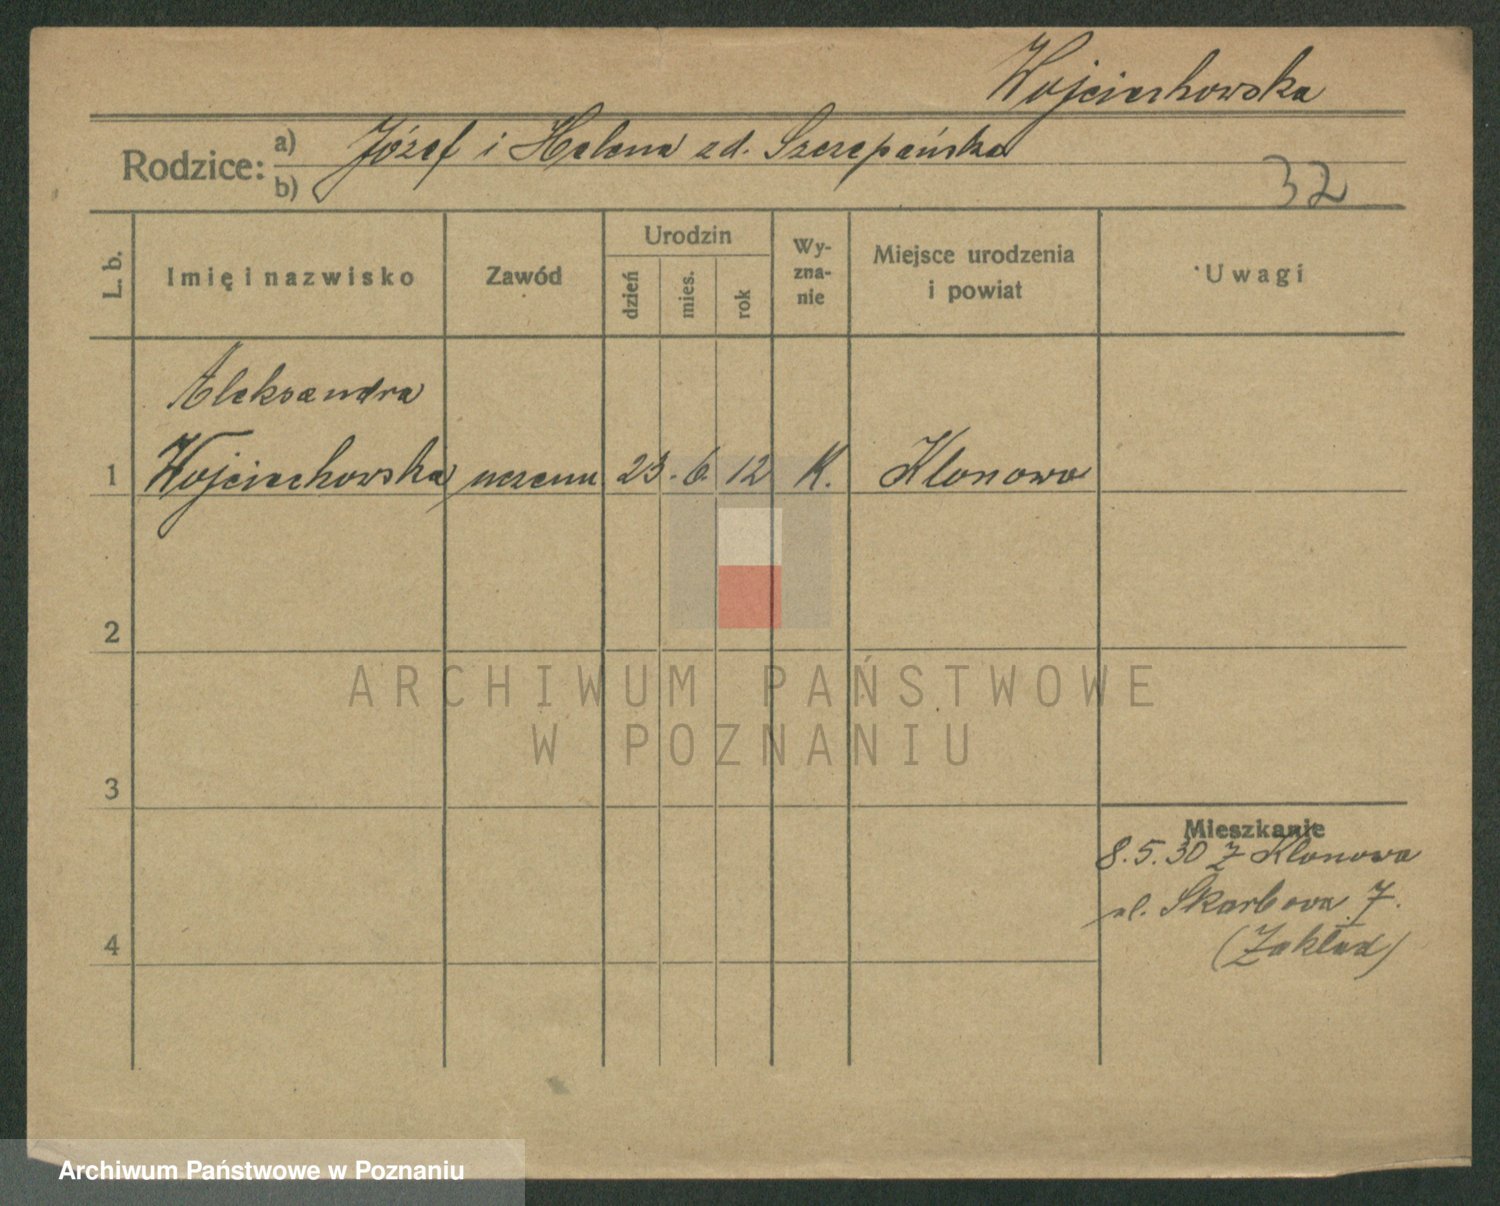 Wojciechowska
Rodzice: a) Józef i Helena zd. Szczepańska
b)
32
L. b.
Imię i nazwisko
Zawód
Urodzin
dzień
mies.
rok
Wy-
zna-
nie
Miejsce urodzenia
i powiat
Uwagi
Aleksandra
1 Wojciechowska uczenn 23. 6. 12 K. Klonowo
2
ARCHIWUM PAŃSTWOWE
W POZNANIU
3
Mieszkanie
8.5.30 z Klonowa
ul. Skarbowa 7.
(Zakład)
4
Archiwum Państwowe w Poznaniu